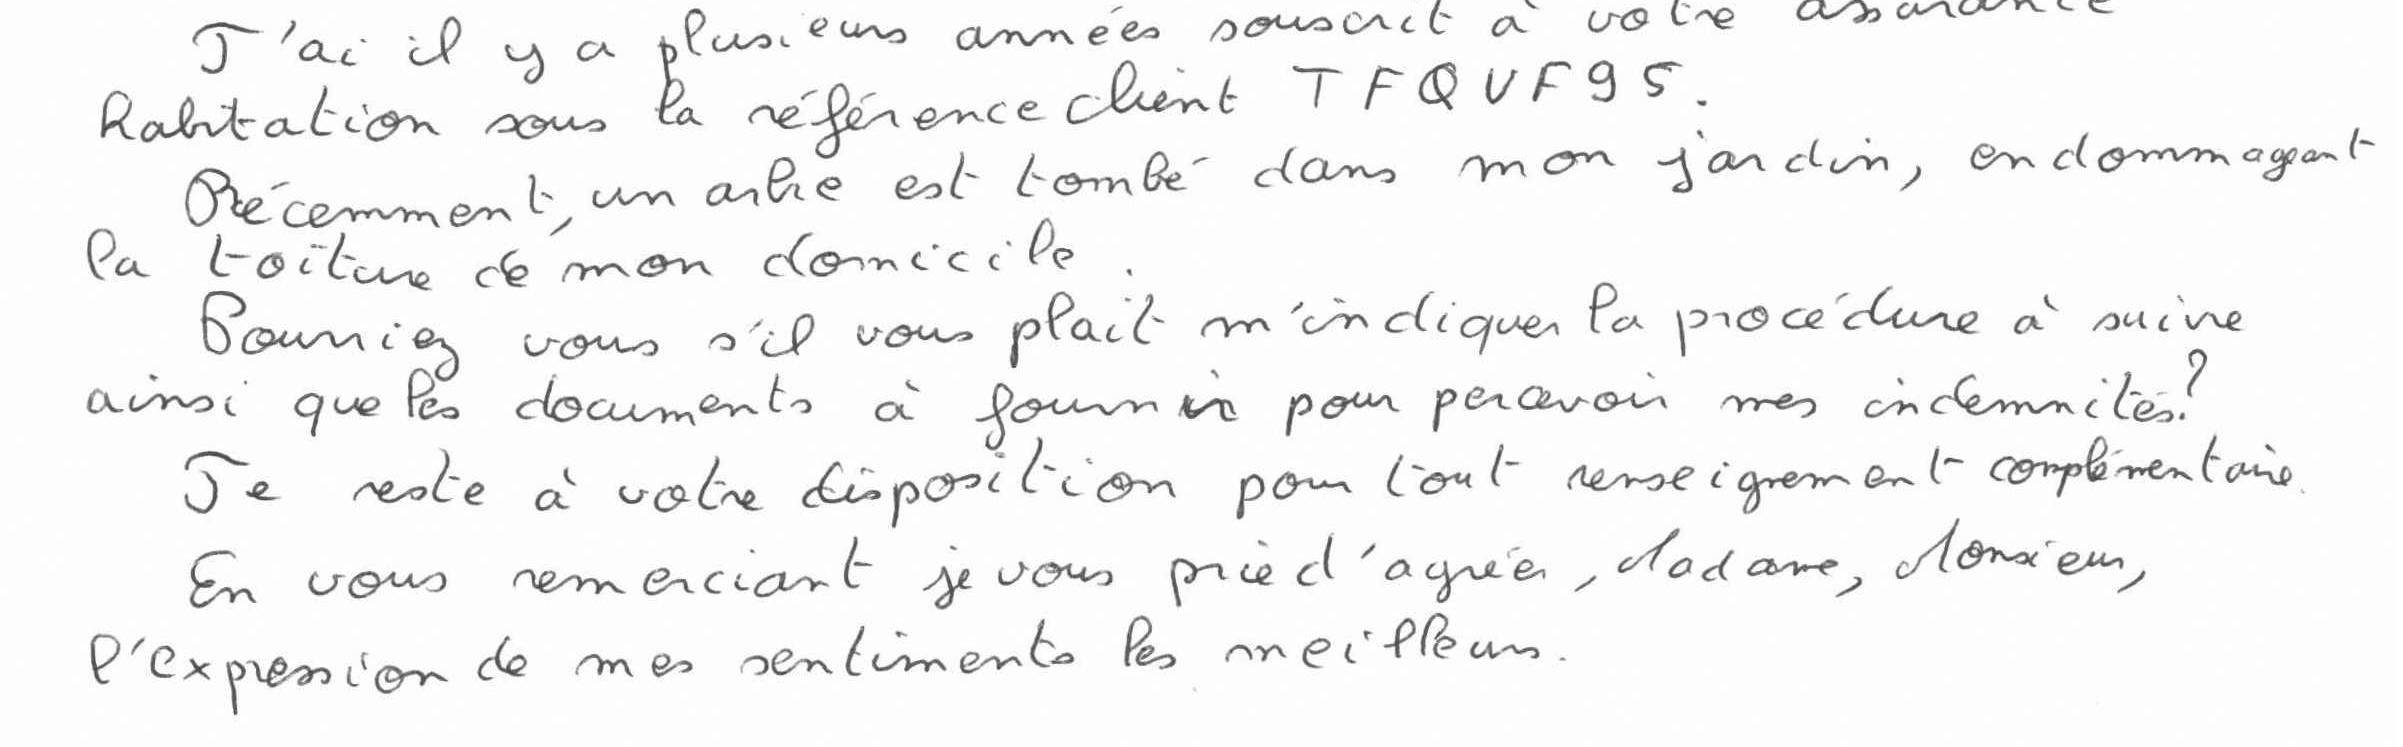 J'ai il y a plusieurs années souscrit à votre assurance
habitation sous la référence client TFQVF95.
Récemment, un arbre est tombé dans mon jardin, endommageant
la toiture de mon domicile.
Pourriez vous s'il vous plait m'indiquer la procédure à suivre
ainsi que les documents à fournir pour percevoir mes indemnités?
Je reste à votre disposition pour tout renseignement complémentaire.
En vous remerciant je vous prie d'agréer, Madame, Monsieur,
l'expression de mes sentiments les meilleurs.